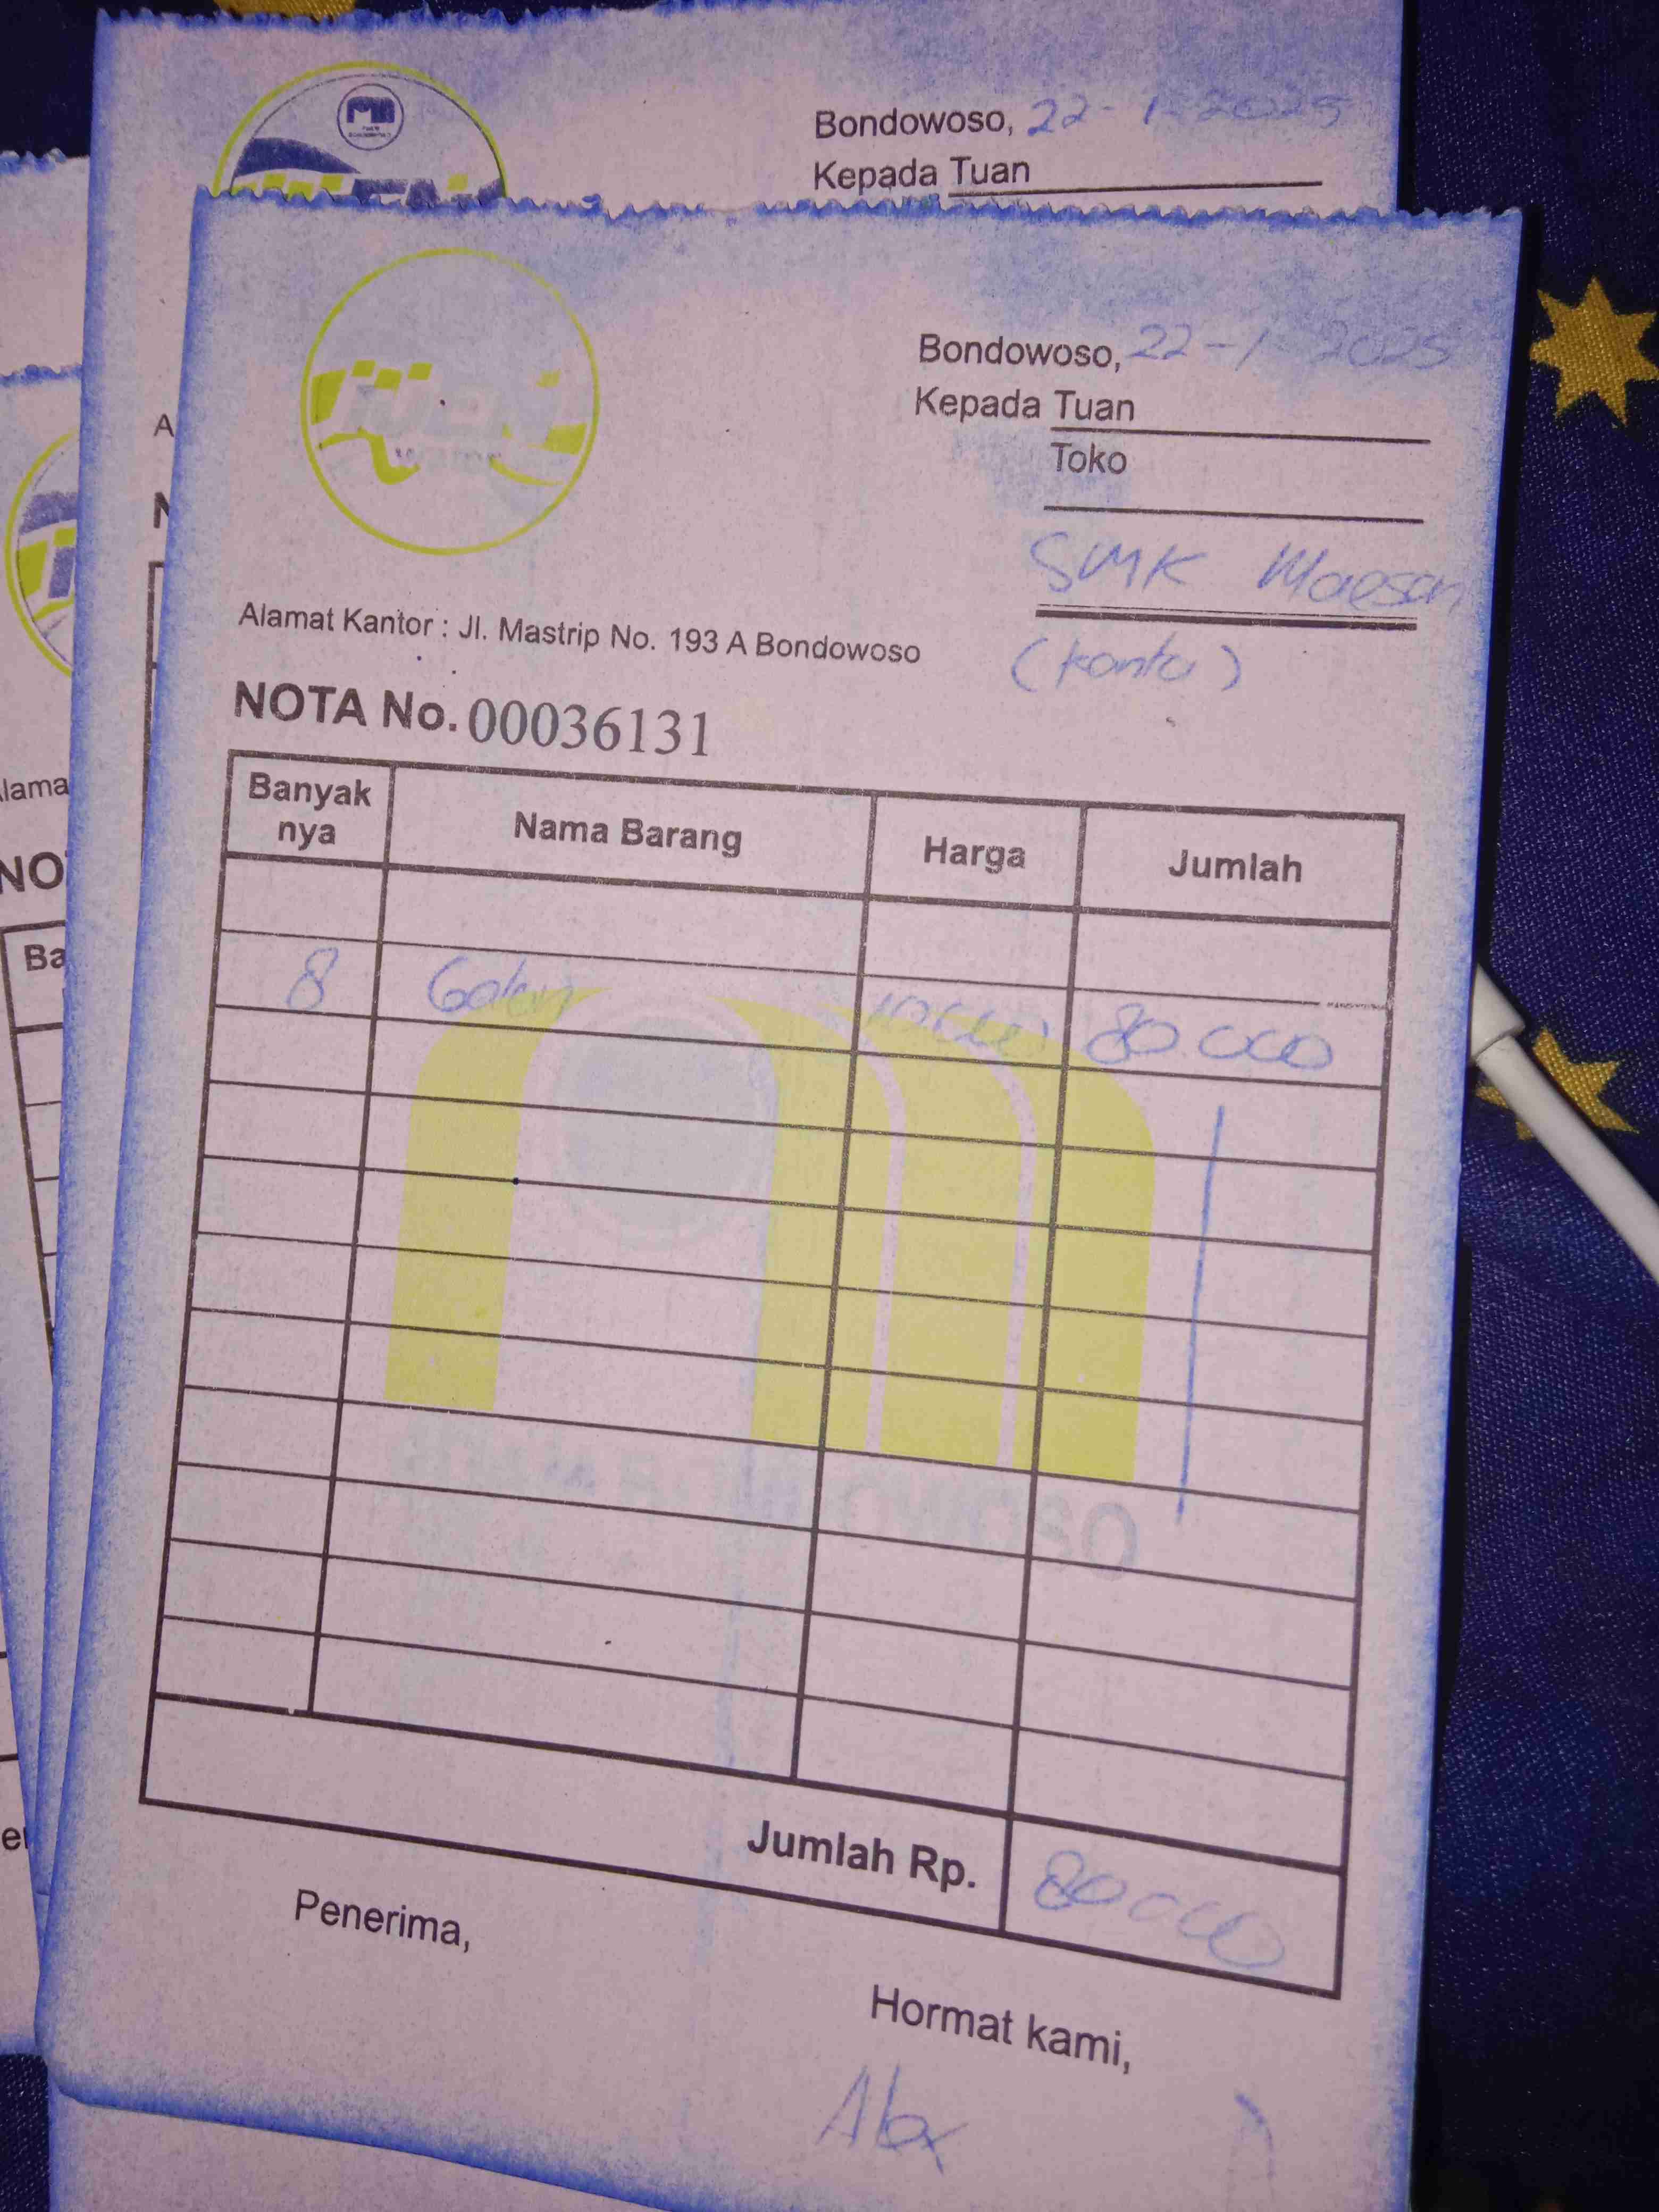 Bondowoso, 22-1-2025
Kepada Tuan
Bondowoso, 22-1-2025
Kepada Tuan
Toko
SMK Maesan
(Kantor)
Alamat Kantor : Jl. Mastrip No. 193 A Bondowoso
NOTA No. 00036131
Banyak nya Nama Barang Harga Jumlah
8 Galon 10.000 80.000
Jumlah Rp. 80.000
Penerima,
Hormat kami,
A
N
lama
NO
Ba